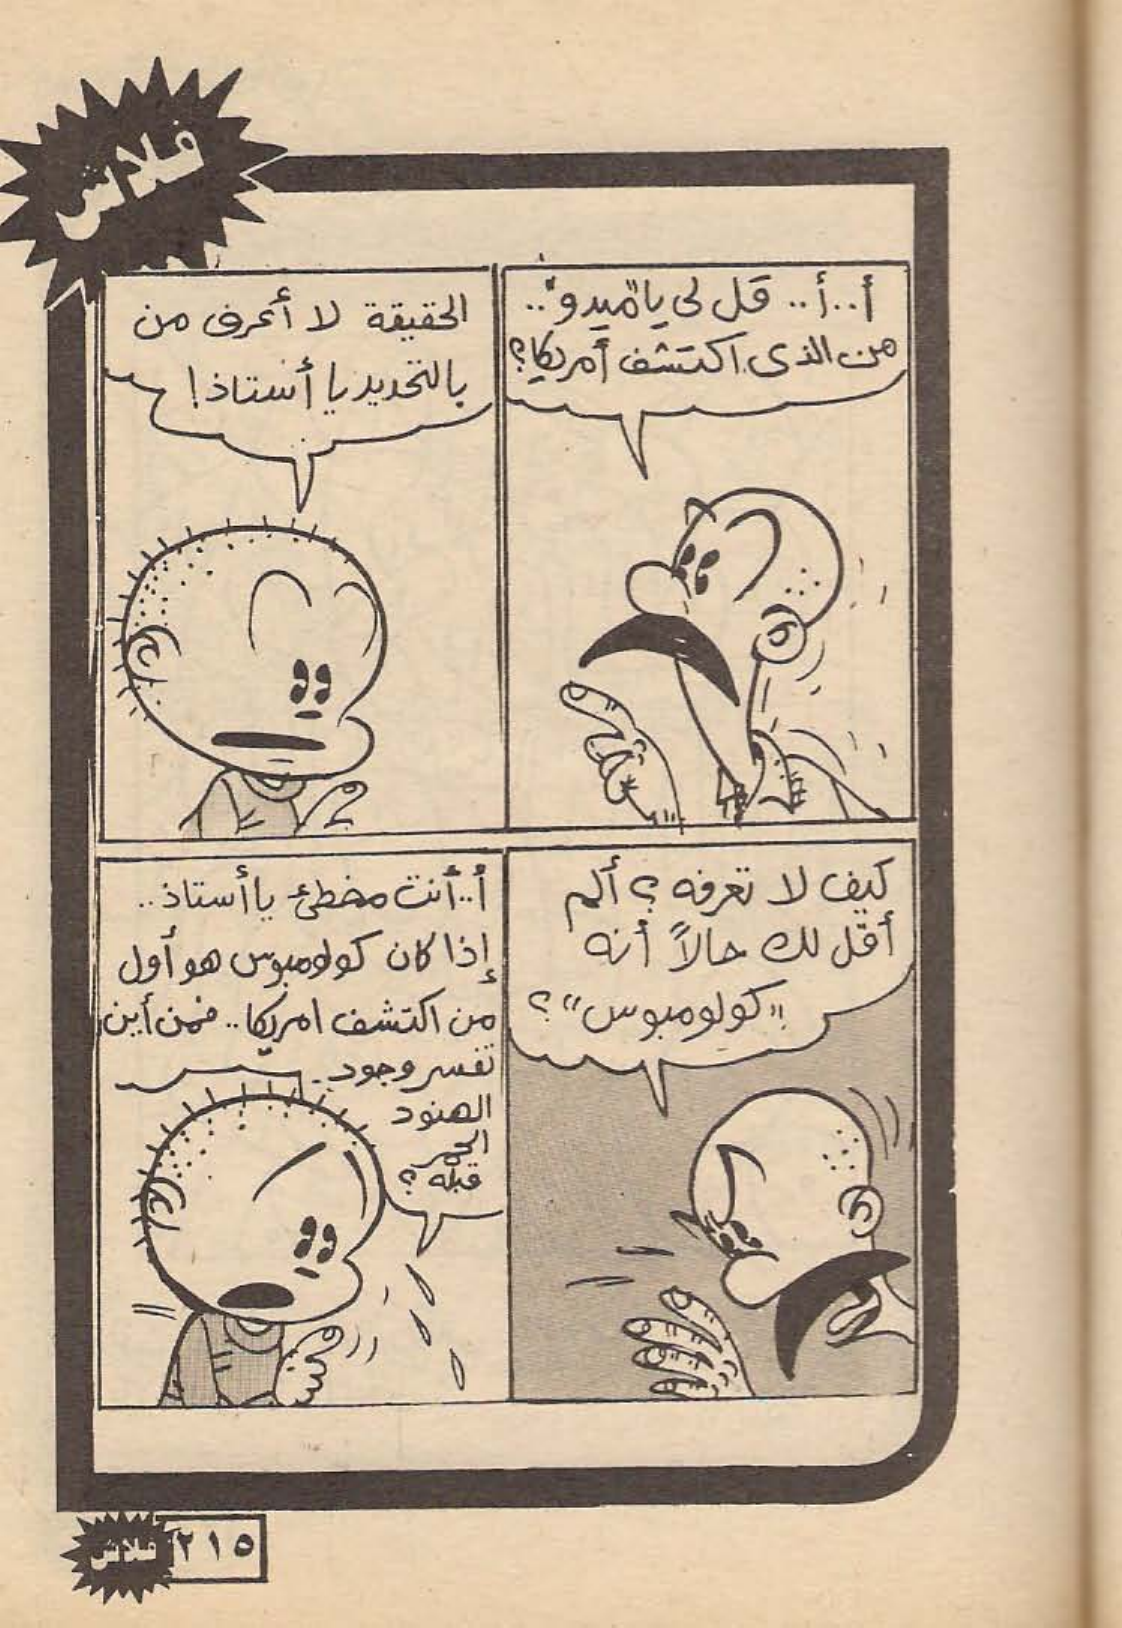 فلاش
أ..أ.. قل لى يا "ميدو"..
من الذى اكتشف أمريكا؟
الحقيقة لا أعرف من
بالتحديد يا أستاذ!
كيف لا تعرفه؟ ألم
أقل لك حالاً أنه
"كولومبوس"؟
أ..أنت مخطئ يا أستاذ..
إذا كان كولومبوس هو أول
من اكتشف امريكا.. فمن أين
تفسر وجود..
الهنود
الحمر
قبله؟
فلاش
٢١٥